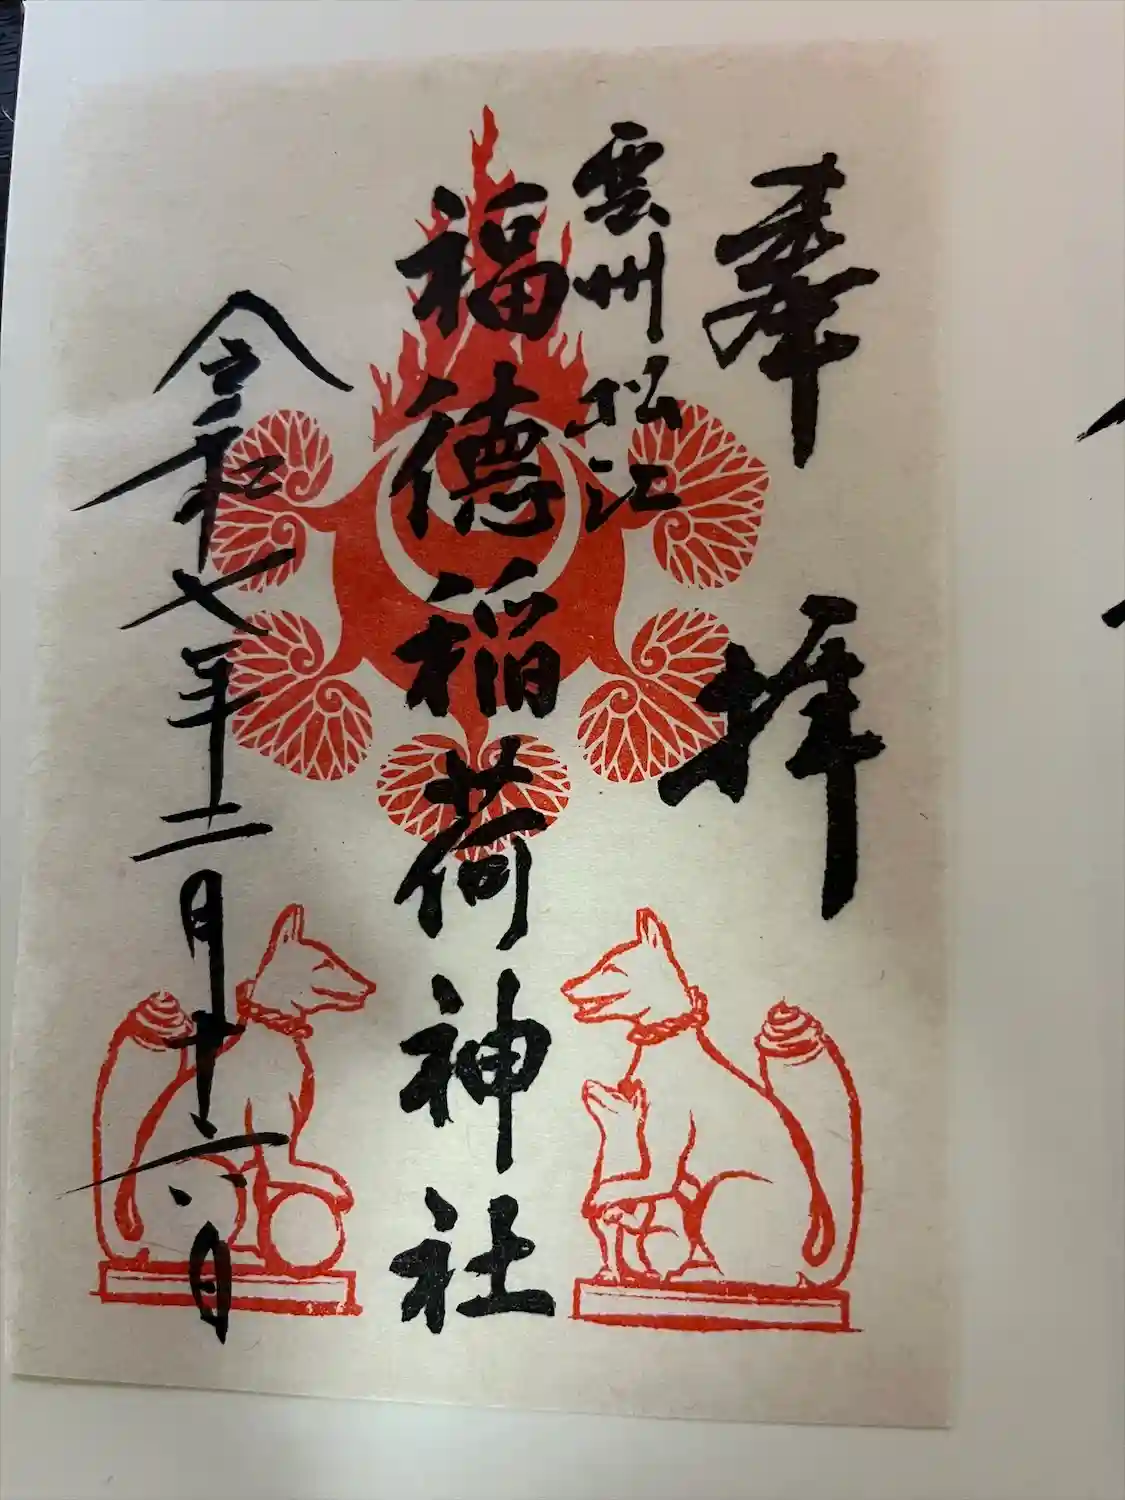 奉拝
雲州松江
福徳稲荷神社
令和七年二月十六日